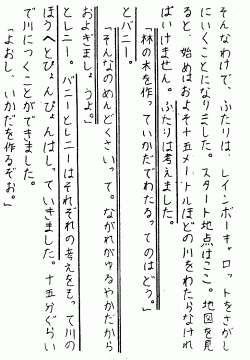 そんなわけで、ふたりは、レインボーキャロットをさがし
にいくことになりました。スタート地点はここ。地図を見
ると、始めはおよそ十五メートルほどの川をわたらなけれ
ばいけません。ふたりは考えました。
「林の木を作っていかだでわたるってのはどう。」
とバニー。
「そんなのめんどくさいって。ながれがゆるやかだから
およぎましょうよ。」
とレニー。バニーとレニーはそれぞれの考えをもって川の
ほうへとぴょんぴょんはしっていきました。十五分ぐらい
で川につくことができました。
「よおし、いかだを作るぞお。」